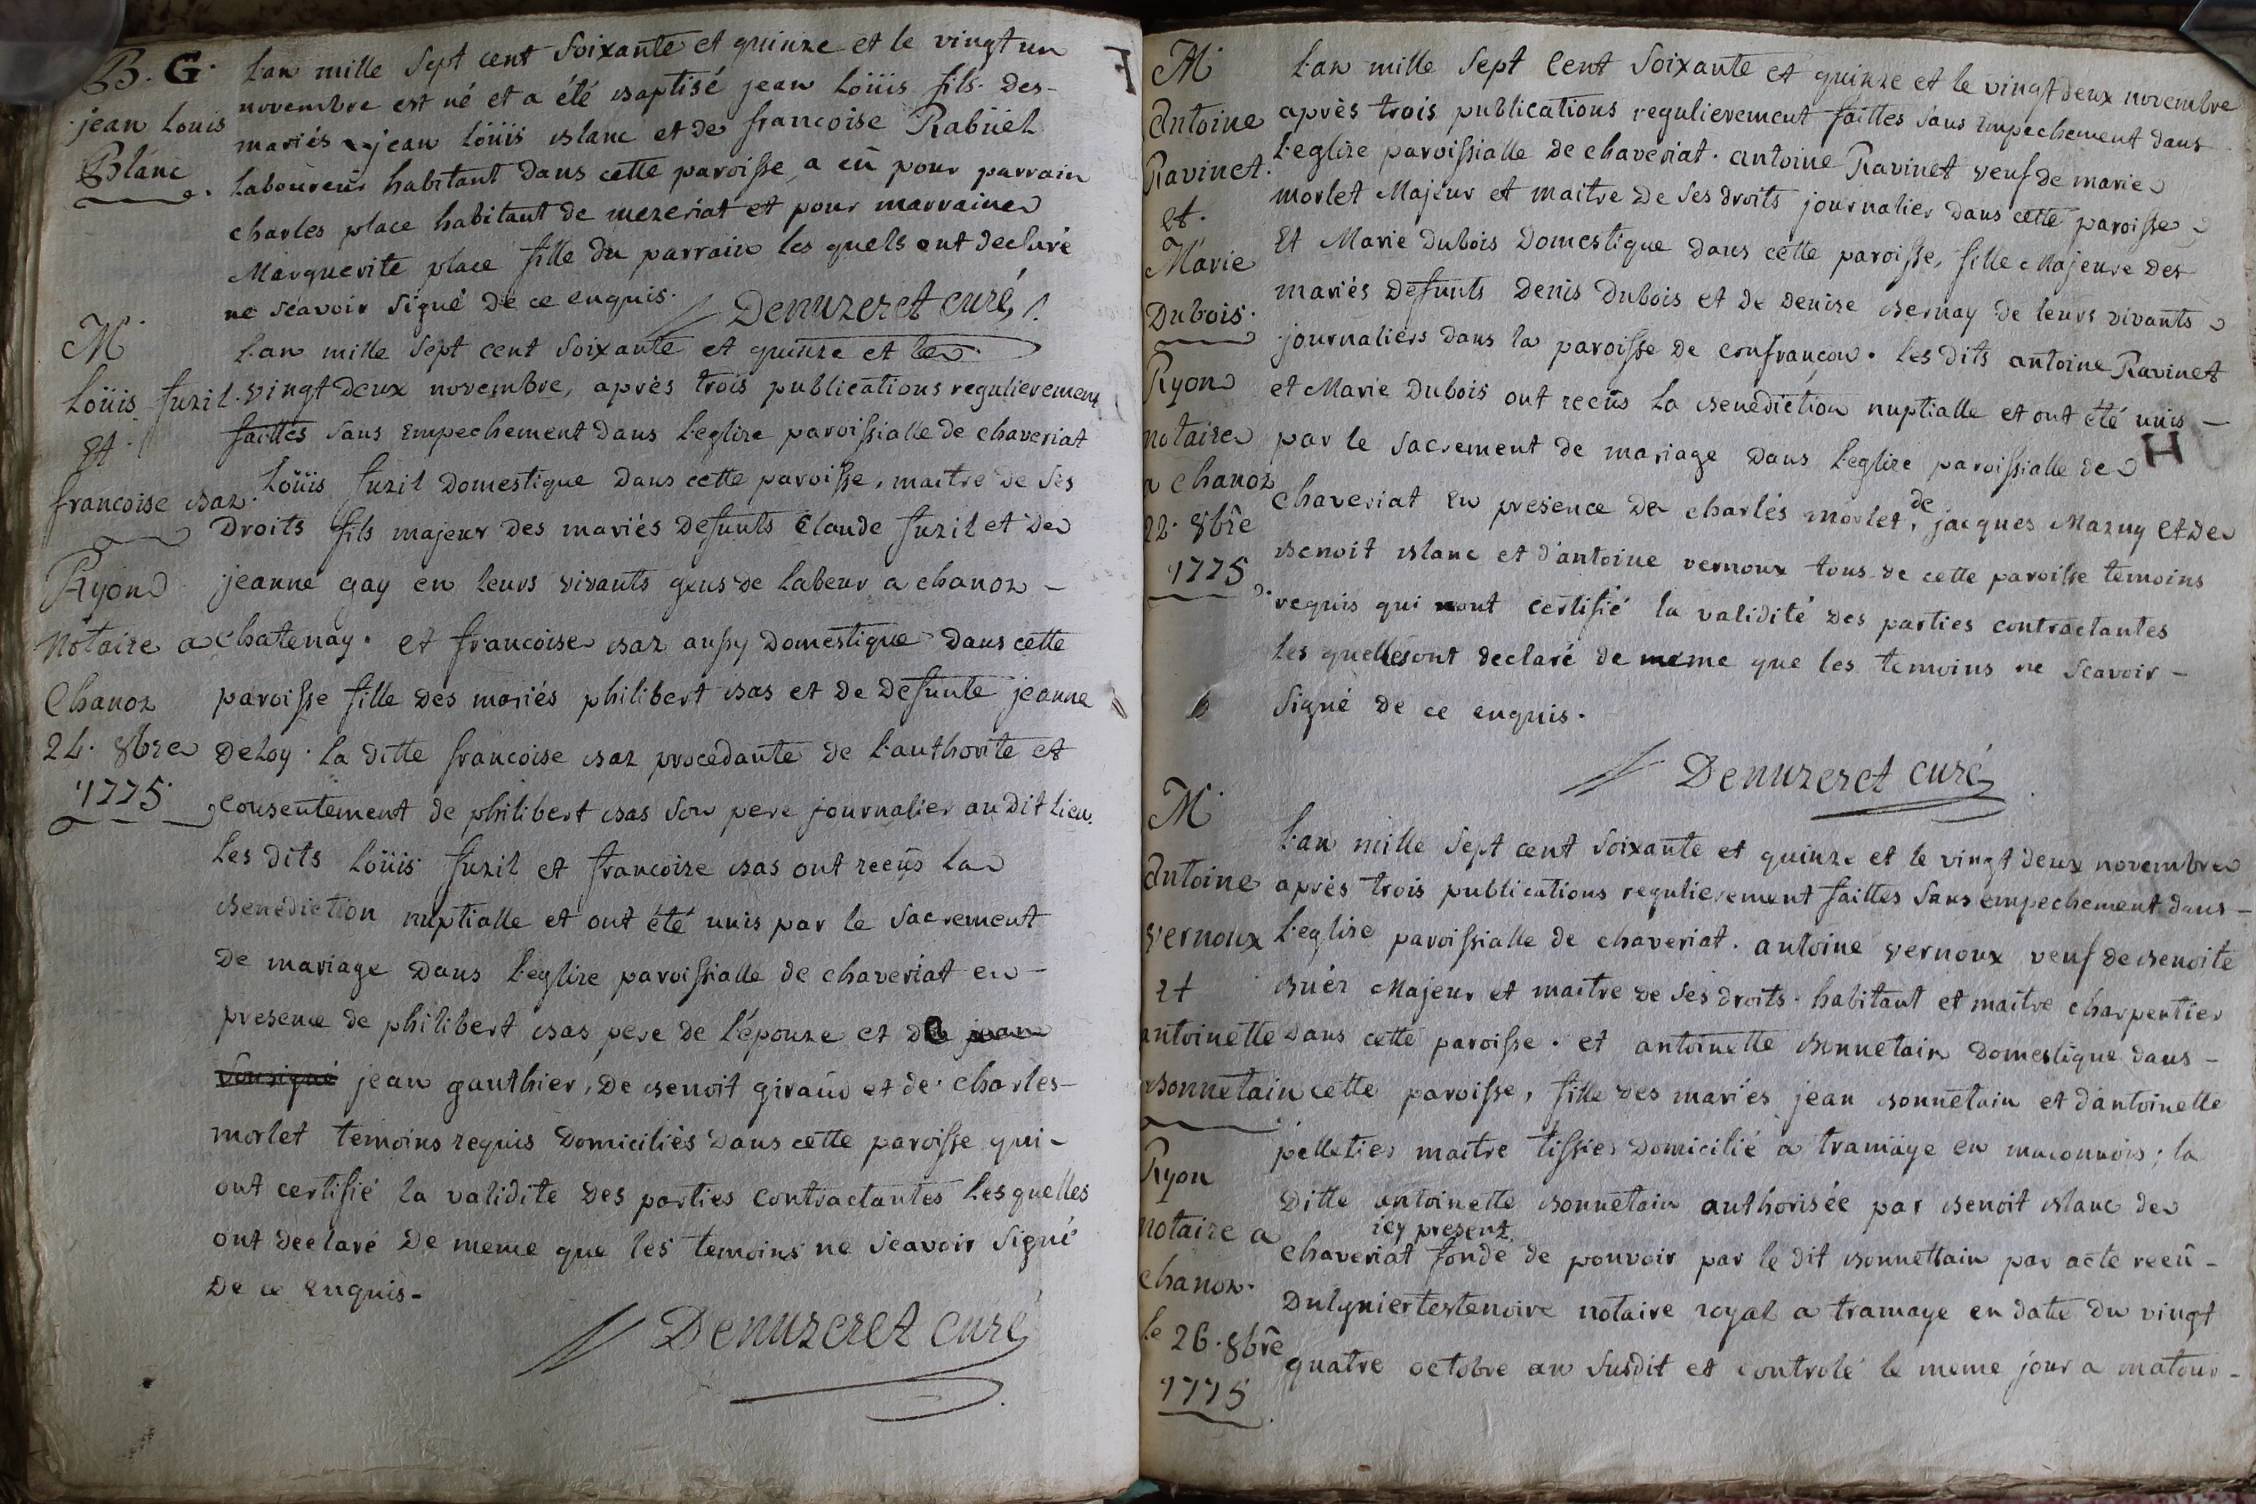 B. G.
jean Louis
Blanc
L'an mille sept cent soixante et quinze et le vingt un
novembre est né et a été baptisé jean Loüis fils des
mariés jean loüis blanc et de francoise Rabüel
laboureur habitant dans cette paroisse, a eü pour parrain
charles place habitant de mezeriat et pour marraine
Marguerite place fille du parrain les quels ont declaré
ne scavoir signé de ce enquis.
Denuzeret curé
M
Loüis fuzil
et
francoise baz
Ryon
Notaire a
Chanoz
24. 8bre
1775
L'an mille sept cent soixante et quinze et le
vingt deux novembre, après trois publications regulierement
faittes sans empechement dans l'eglize paroissialle de chaveriat
Loüis fuzil domestique dans cette paroisse, maitre de ses
droits fils majeur des mariés defunts claude fuzil et de
jeanne gay en leurs vivants gens de labeur a chanoz
chatenay. et francoise baz aussy domestique dans cette
paroisse fille des mariés philibert bas et de defunte jeanne
deloy. la ditte francoise baz procedante de l'authorité et
consentement de philibert bas son pere journalier au dit lieu.
les dits Loüis fuzil et francoize bas ont reeüs la
benediction nuptialle et ont été unis par le sacrement
de mariage dans l'eglize paroissialle de chaveriat en
presence de philibert bas pere de l'épouze et de jean
jean gauthier, de benoit giraud et de charles
morlet temoins requis domiciliés dans cette paroisse qui
ont certifié la validité des parties contractantes lesquelles
ont declaré de meme que les temoins ne scavoir signé
de ce enquis.
Denuzeret curé
M
antoine
Ravinet.
et.
Marie
Dubois.
Ryon
notaire
a chanoz
22. 8bre
1775
L'an mille sept cent soixante et quinze et le vingt deux novembre
après trois publications regulierement faittes sans empechement dans
l'eglize paroissialle de chaveriat. antoine Ravinet veuf de marie
morlet Majeur et maitre de ses droits journalier dans cette paroisse
et Marie dubois domestique dans cette paroisse, fille Majeure des
mariés defunts denis dubois et de denise bernay de leurs vivants
journaliers dans la paroisse de confrançon. les dits antoine Ravinet
et Marie dubois ont reeüs la benediction nuptialle et ont été unis
par le sacrement de mariage dans l'eglize paroissialle de
H
chaveriat en presence de charles morlet, de jacques Mazuy et de
benoit blanc et d'antoine vernoux tous de cette paroisse temoins
requis qui ont certifié la validité des parties contractantes
les quelles ont declaré de meme que les temoins ne scavoir
signé de ce enquis.
Denuzeret curé
M
antoine
vernoux
et
antoinette
bonnetain
Ryon
notaire a
chanoz.
le 26. 8bre
1775
L'an mille sept cent soixante et quinze et le vingt deux novembre
après trois publications regulierement faittes sans empechement dans
l'eglize paroissialle de chaveriat. antoine vernoux veuf de benoite
buér Majeur et maitre de ses droits. habitant et maitre charpentier
dans cette paroisse. et antoinette bonnetain domestique dans
cette paroisse, fille des mariés jean bonnetain et d'antoinette
pelletier maitre tissier domicilié a tramaye en maconnois; la
ditte antoinette bonnetain authorisée par benoit blanc de
icy present
chaveriat fondé de pouvoir par le dit bonnettain par acte reeü
notaire royal a tramaye en date du vingt
quatre octobre an susdit et controlé le meme jour a matour